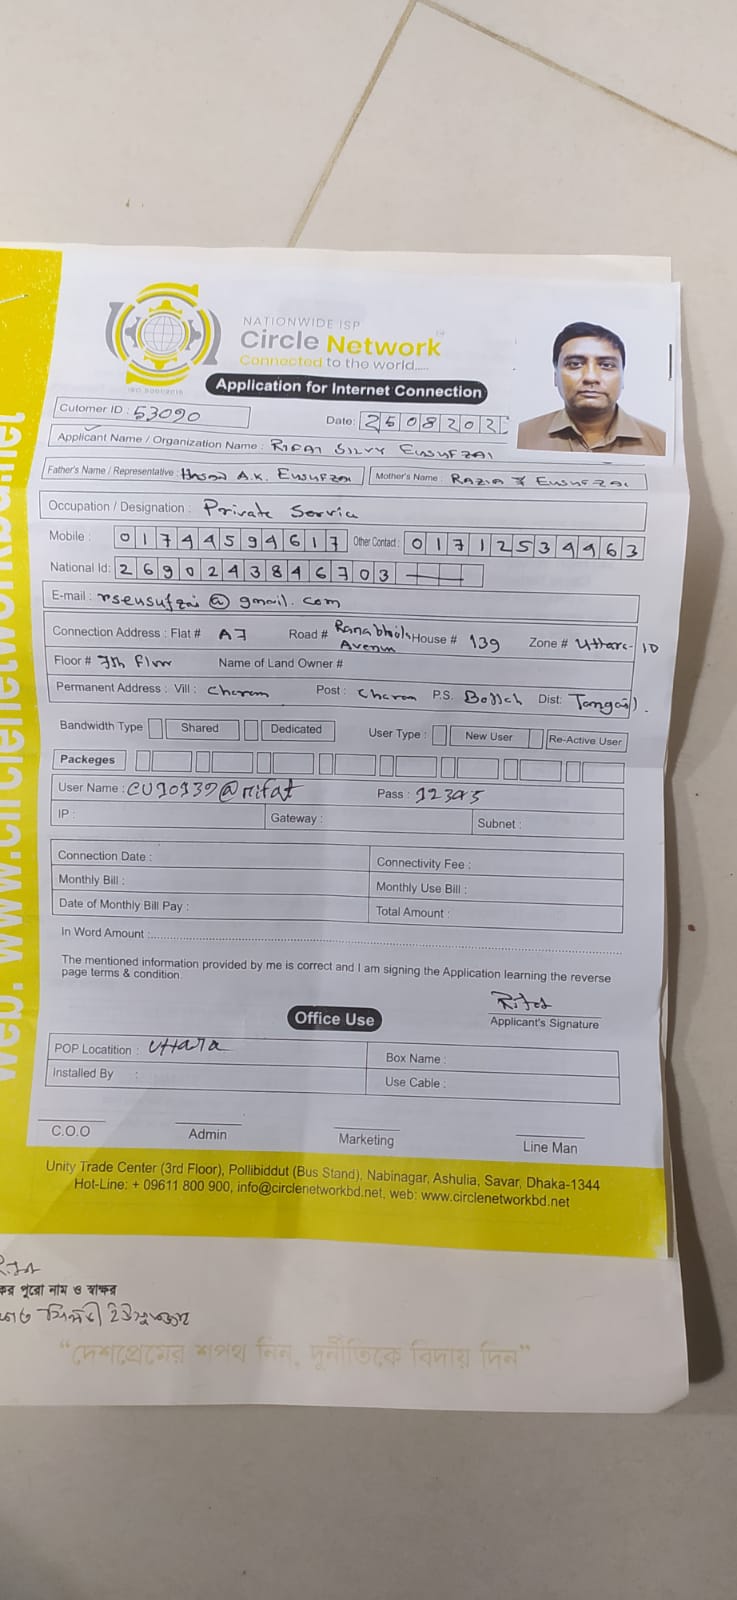 NATIONWIDE ISP
Circle Network
Connected to the world.....
ISO 9001:2015
Application for Internet Connection
Cutomer ID : 53090
Date: 2508202
Applicant Name / Organization Name : RIFAT SILVY EUSUFZAI
Father's Name / Representative : Hasan A.K. EUSUFZAI Mother's Name : RAZIA EUSUFZAI
Occupation / Designation : Private Service
Mobile : 01744594617 Other Contact : 01712534963
National Id: 2690243846703
E-mail : rseusufzai@gmail.com
Connection Address : Flat # A7 Road # Ranabhola Avenue House # 139 Zone # Uttara-10
Floor # 7th Floor Name of Land Owner #
Permanent Address : Vill : Charan Post : Charan P.S. Dist: Tangail.
Bandwidth Type Shared Dedicated User Type : New User Re-Active User
Packeges
User Name : CU90939@rifat Pass : 12345
IP : Gateway : Subnet :
Connection Date : Connectivity Fee :
Monthly Bill : Monthly Use Bill :
Date of Monthly Bill Pay : Total Amount :
In Word Amount :
The mentioned information provided by me is correct and I am signing the Application learning the reverse
page terms & condition.
Rifat
Applicant's Signature
Office Use
POP Locatition : Uttara Box Name :
Installed By : Use Cable :
C.O.O Admin Marketing Line Man
Unity Trade Center (3rd Floor), Pollibiddut (Bus Stand), Nabinagar, Ashulia, Savar, Dhaka-1344
Hot-Line: + 09611 800 900, info@circlenetworkbd.net, web: www.circlenetworkbd.net
web: www.circlenetworkbd.net
পুরো নাম ও স্বাক্ষর
“দেশপ্রেমের শপথ নিন, দুর্নীতিকে বিদায় দিন”